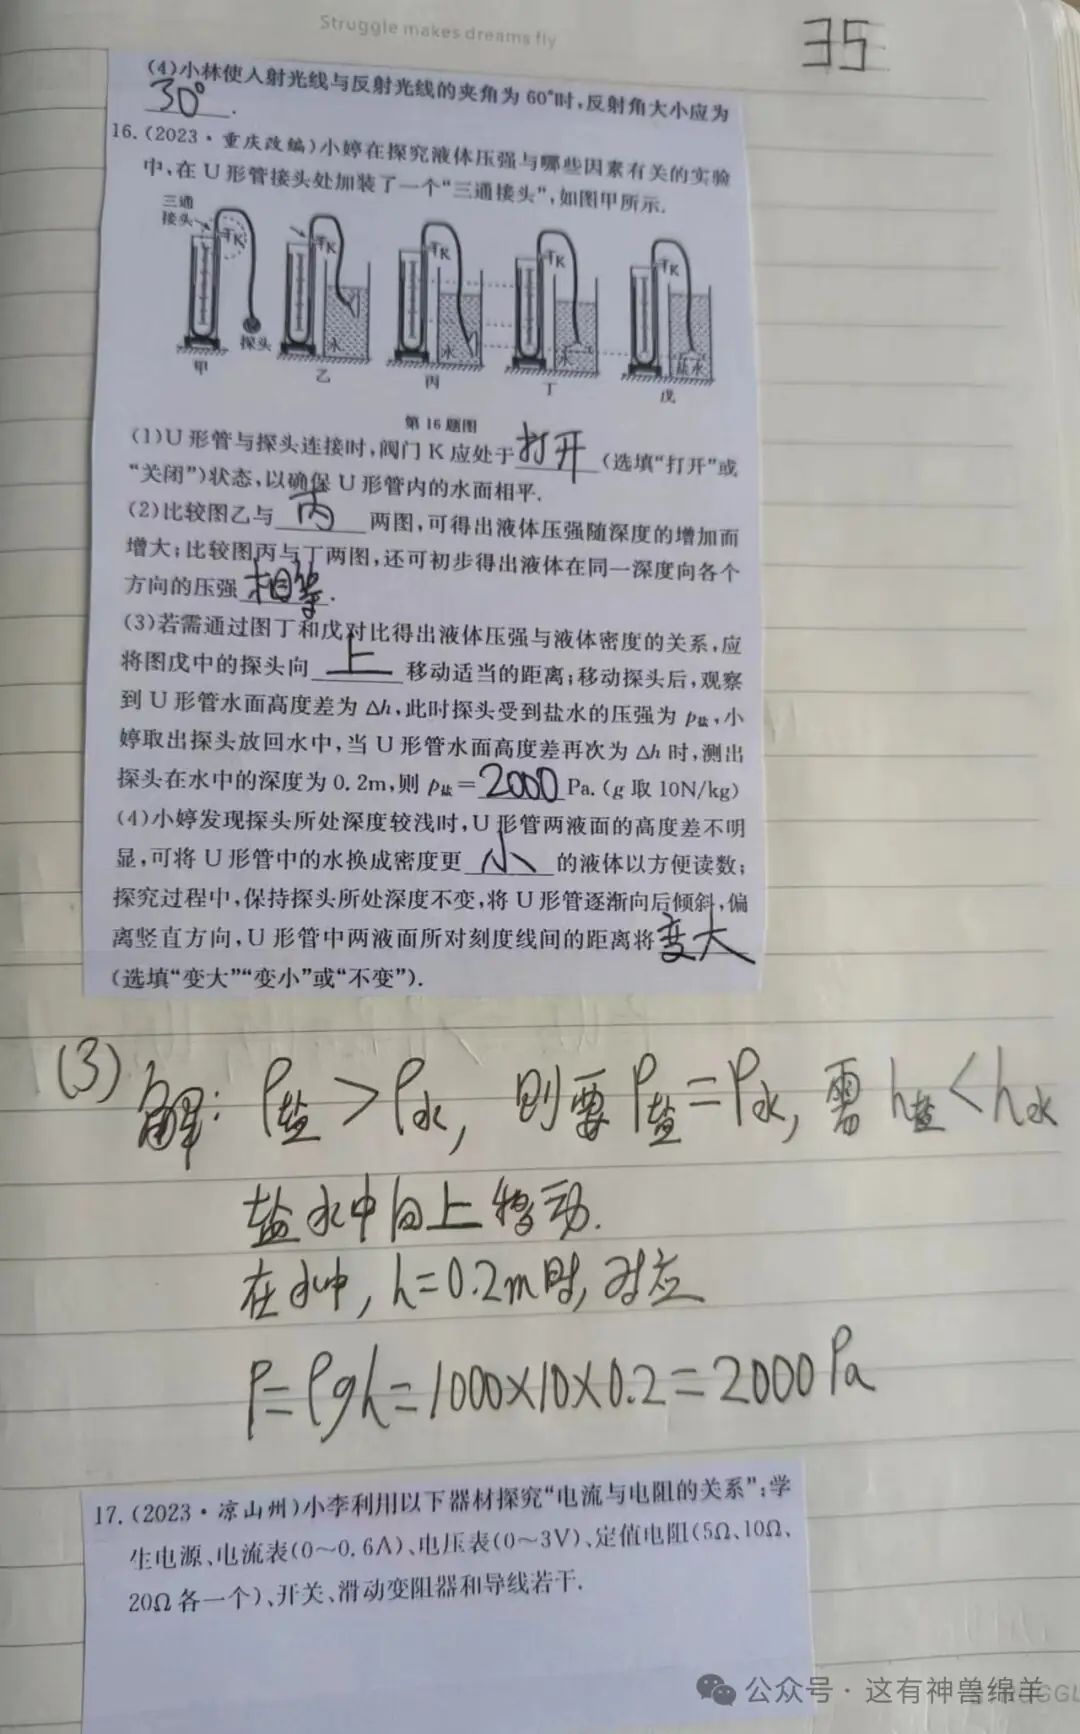 Struggle makes dreams fly
35
(4)小林使入射光线与反射光线的夹角为60°时,反射角大小应为
30°.
16.(2023·重庆改编)小婷在探究液体压强与哪些因素有关的实验
中,在U形管接头处加装了一个“三通接头”,如图甲所示.
三通
接头
K K K K K
探头 水 水 水 盐水
甲 乙 丙 丁 戊
第16题图
(1)U形管与探头连接时,阀门K应处于打开(选填“打开”或
“关闭”)状态,以确保U形管内的水面相平.
(2)比较图乙与丙两图,可得出液体压强随深度的增加而
增大;比较图丙与丁两图,还可初步得出液体在同一深度向各个
方向的压强相等.
(3)若需通过图丁和戊对比得出液体压强与液体密度的关系,应
将图戊中的探头向上移动适当的距离;移动探头后,观察
到U形管水面高度差为Δh,此时探头受到盐水的压强为p盐,小
婷取出探头放回水中,当U形管水面高度差再次为Δh时,测出
探头在水中的深度为0.2m,则p盐=2000Pa.(g取10N/kg)
(4)小婷发现探头所处深度较浅时,U形管两液面的高度差不明
显,可将U形管中的水换成密度更小的液体以方便读数;
探究过程中,保持探头所处深度不变,将U形管逐渐向后倾斜,偏
离竖直方向,U形管中两液面所对刻度线间的距离将变大
(选填“变大”“变小”或“不变”).
(3)解:ρ盐>ρ水,则要P盐=P水,需h盐<h水
盐水中向上移动.
在水中,h=0.2m时,对应
P=ρgh=1000×10×0.2=2000Pa
17.(2023·凉山州)小李利用以下器材探究“电流与电阻的关系”:学
生电源、电流表(0~0.6A)、电压表(0~3V)、定值电阻(5Ω、10Ω、
20Ω各一个)、开关、滑动变阻器和导线若干.
公众号·这有神兽绵羊